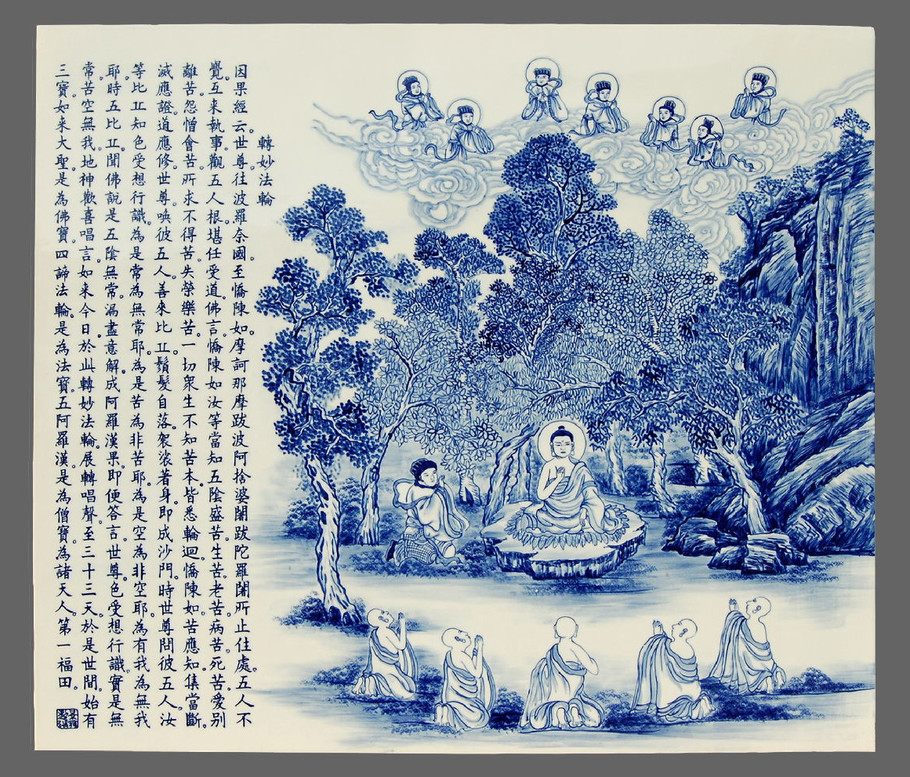 轉妙法輪
因果經云。世尊往波羅奈國。至憍陳如。摩訶那摩跋波阿捨婆闍跋陀羅闍所止住處。五人不
覺互來執事。觀五人根。堪任受道。佛言憍陳如汝等當知五陰盛苦生苦老苦病苦死苦愛別
離苦怨憎會苦。所求不得苦。失榮樂苦。一切眾生不知苦本。皆悉輪迴。憍陳如苦應知集當斷。
滅應證。道應修。世尊喚彼五人。善來比丘。鬚髮自落。袈裟著身。即成沙門。時世尊問彼五人汝
等比丘知色受想行識。為是常為無常耶。為是苦為非苦耶。為是空為非空耶。為有我為無我
耶。時五比丘。聞佛說是五陰無常。漏盡意解。成阿羅漢果。即便答言。世尊色受想行識。實是無
常。苦空無我。地神歡喜唱言。如來今日。於此轉妙法輪。展轉唱聲。至三十三天。於是世間。始有
三寶。如來大聖。是為佛寶。四諦法輪。是為法寶。五阿羅漢。是為僧寶。為諸天人。第一福田。